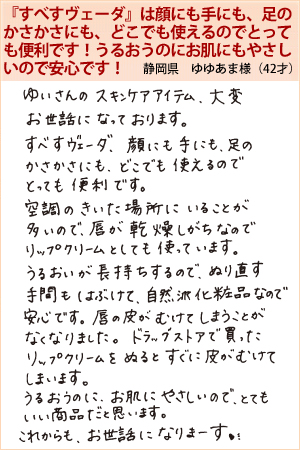 『すべすヴェーダ』は顔にも手にも、足の
かさかさにも、どこでも使えるのでとって
も便利です！うるおうのにお肌にもやさし
いので安心です！　静岡県　ゆゆあま様（42才）
ゆいさんの スキンケアアイテム、大変
お世話に なっております。
すべすヴェーダ、顔にも 手にも、足の
かさかさにも、どこでも 使えるので
とっても 便利 です。
空調の きいた場所に いることが
多いので、唇が 乾燥しがちなので
リップクリームとしても 使っています。
うるおいが 長持ちするので、ぬり直す
手間も はぶけて、自然派化粧品なので
安心です。唇の皮が むけてしまうことが
なくなりました。ドラッグストアで 買った
リップクリームを ぬると すぐに 皮が むけて
しまいます。
うるおうのに、お肌に やさしいので、とても
いい商品だと思います。
これからも、お世話に なりまーす。